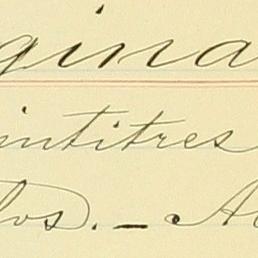 gina
intitres
los. — A